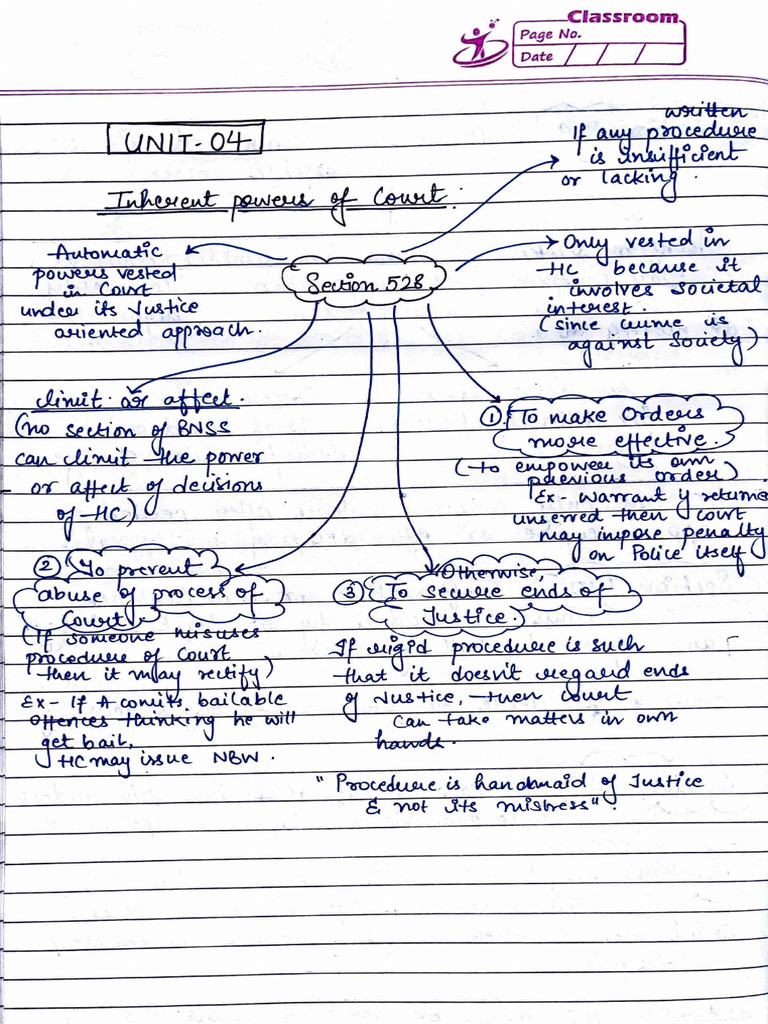 Classroom
Page No.
Date
UNIT-04
Inherent powers of Court.
written
If any procedure
is insufficient
or lacking.
Automatic
powers vested
in Court
under its Justice
oriented approach.
Section 528
Only vested in
HC because it
involves societal
interest.
(since crime is
against Society)
limit or affect.
(no section of BNSS
can limit the power
or affect of decisions
of HC)
① To make Orders
more effective.
(to empower its own
previous order)
Ex- warrant y returne
unserved then court
may impose penalty
on Police itself
② To prevent
abuse of process of
Court
(If someone misuses
procedure of Court
then it may rectify)
Ex- If A comits bailable
offences thinking he will
get bail,
HC may issue NBW.
Otherwise,
③ To secure ends of
Justice.
If rigid procedure is such
that it doesn't regard ends
of Justice, then court
can take matters in own
hands.
"Procedure is handmaid of Justice
& not its mistress".